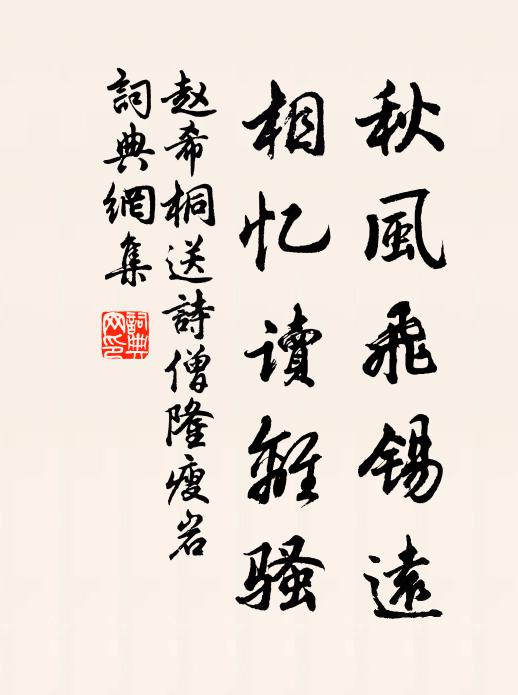 秋風飛錫遠
相忆讀離騷
赵希桐送詩僧隆瘦岩
詞典網集
詞典网印